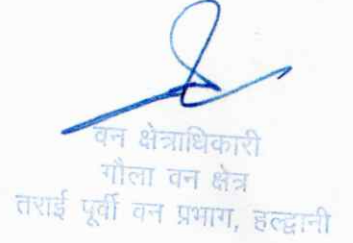 वन क्षेत्राधिकारी
गौला वन क्षेत्र
तराई पूर्वी वन प्रभाग, हल्द्वानी